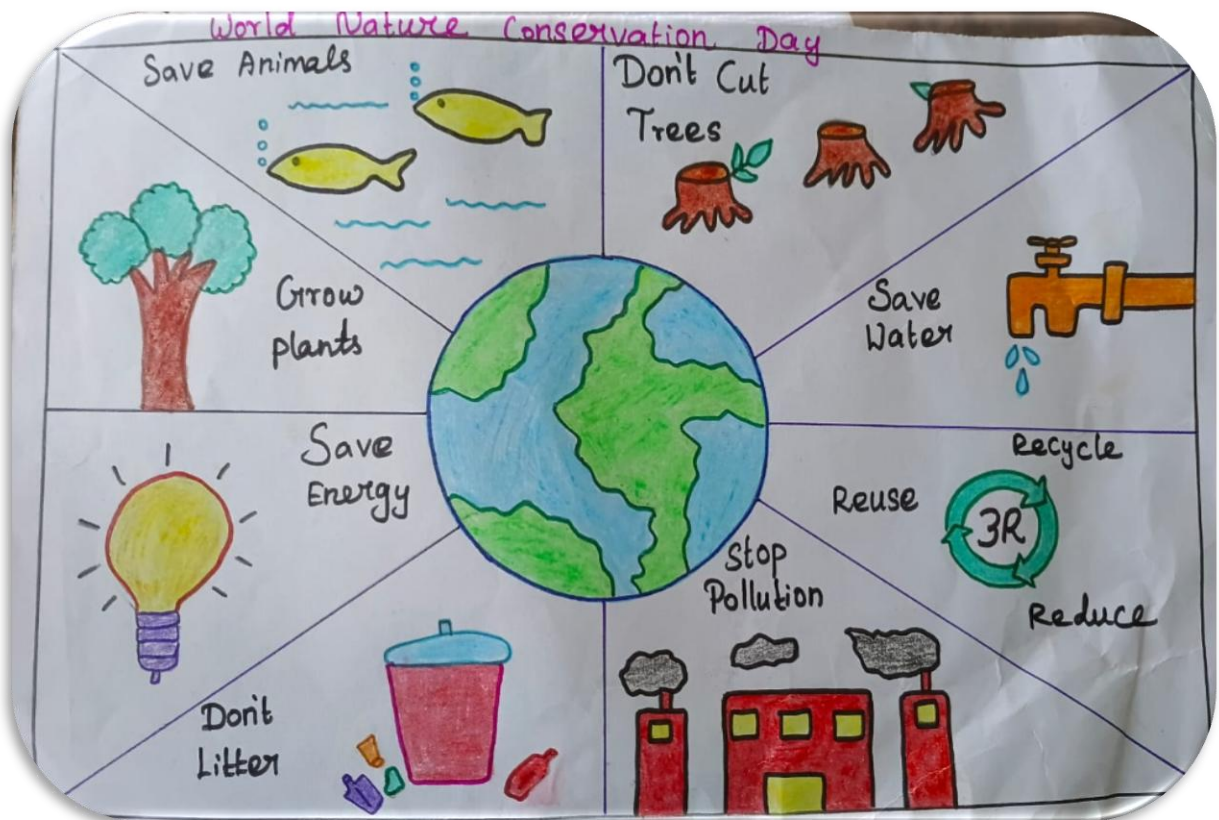 World Nature Conservation Day
Save Animals
Don't Cut
Trees
Grow
plants
Save
Water
Save
Energy
Recycle
Reuse
3R
Reduce
Stop
Pollution
Don't
Litter